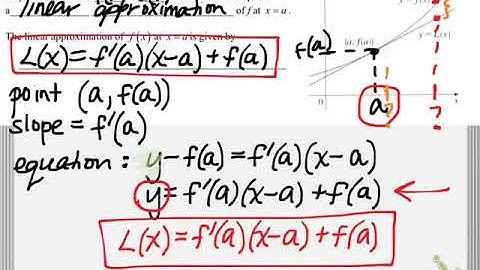 a linear approximation of f at x = a.
The linear approximation of f(x) at x = a is given by
L(x) = f'(a)(x-a) + f(a)
point (a, f(a))
slope = f'(a)
equation: y - f(a) = f'(a)(x-a)
y = f'(a)(x-a) + f(a)
L(x) = f'(a)(x-a) + f(a)
y = L(x)
f(a)
(a, f(a))
0
a
x